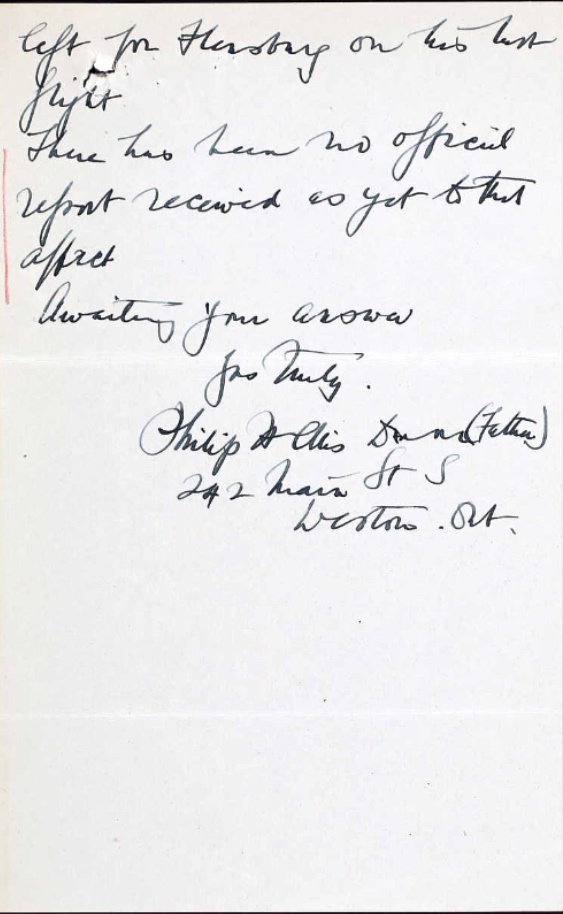 left for Flensburg on his last
flight
There has been no official
report received as yet to that
affect
Awaiting your answer
Yrs Truly.
Philip (Father)
242 Main St S
Weston. Ont.